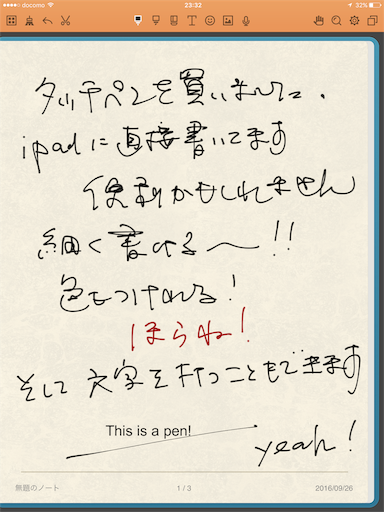 docomo 23:32 32%
タッチペンを買いました.
ipadに直接書いてます
便利かもしれません
細く書ける〜!!
色もつけれる!
ほらね!
そして文字を打つこともできます
This is a pen!
yeah!
無題のノート 1 / 3 2016/09/26